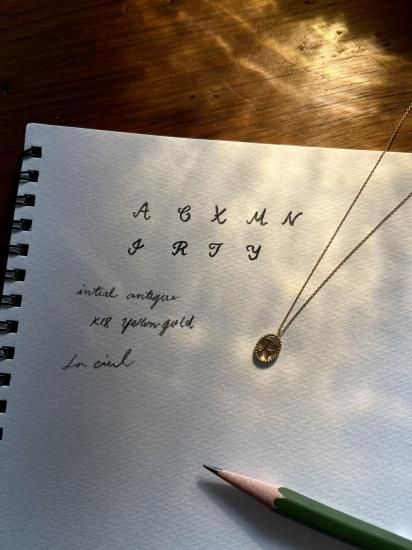 A C X M N
I R T Y
initial antique
K18 Yellow gold
La ciel